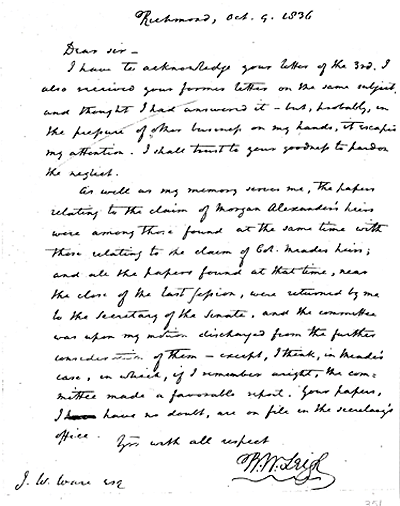 Richmond, Oct. 9. 1836
Dear sir –
I have to acknowledge your letter of the 3rd. I
also received your former letter on the same subject,
and thought I had answered it – but, probably, in
the pressure of other business on my hands, it escaped
my attention. I shall trust to your goodness to pardon
the neglect.
As well as my memory serves me, the papers
relating to the claim of Morgan Alexander's heirs
were among those found at the same time with
those relating to the claim of Col. Meades heirs;
and all the papers found at that time, near
the close of the last session, were returned by me
to the Secretary of the Senate, and the committee
was upon my motion discharged from the further
consideration of them – except, I think, in Meade's
case, in which, if I remember aright, the com-
mittee made a favorable report. Your papers,
I have no doubt, are on file in the secretary's
office.
Yrs with all respect
B. W. Leigh
J. W. Ware esq